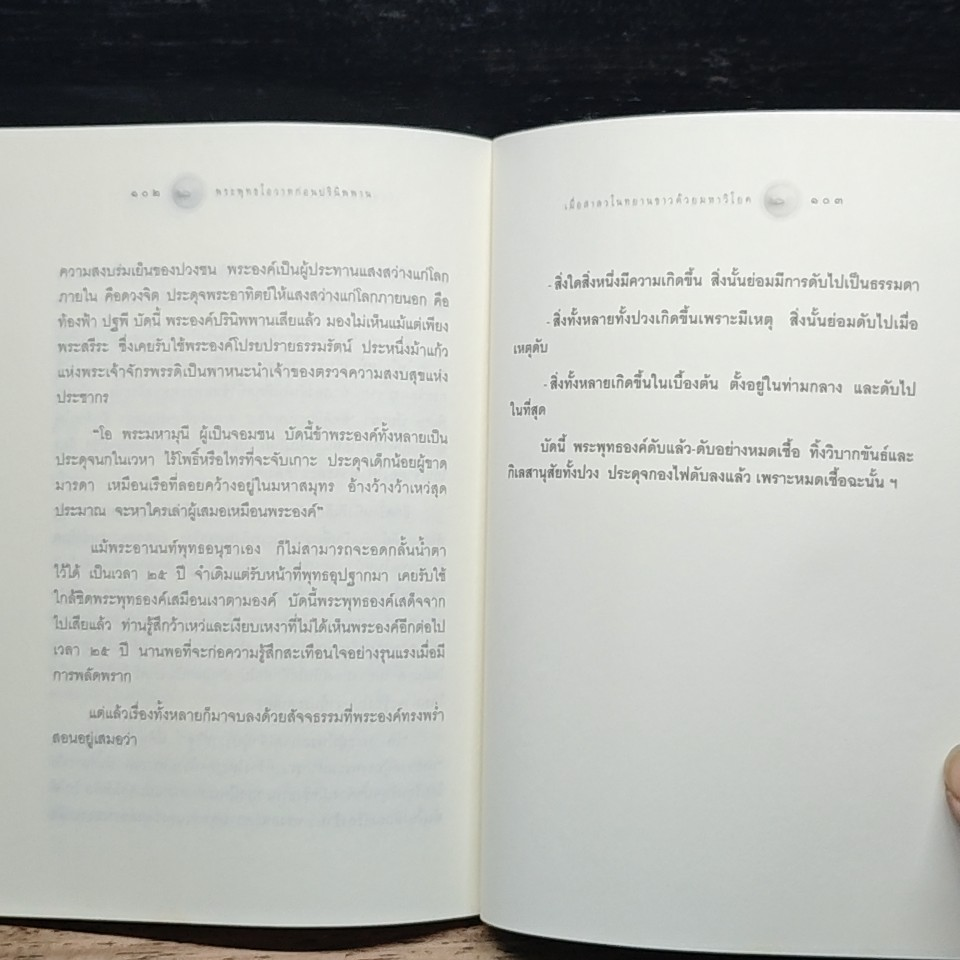 ๑๐๒ พระพุทธโอวาทก่อนปรินิพพาน
ความสงบร่มเย็นของปวงชน พระองค์เป็นผู้ประทานแสงสว่างแก่โลก
ภายใน คือดวงจิต ประดุจพระอาทิตย์ให้แสงสว่างแก่โลกภายนอก คือ
ท้องฟ้า ปฐพี บัดนี้ พระองค์ปรินิพพานเสียแล้ว มองไม่เห็นแม้แต่เพียง
พระสรีระ ซึ่งเคยรับใช้พระองค์โปรยปรายธรรมรัตน์ ประหนึ่งม้าแก้ว
แห่งพระเจ้าจักรพรรดิเป็นพาหนะนำเจ้าของตรวจความสงบสุขแห่ง
ประชากร
"โอ พระมหามุนี ผู้เป็นจอมชน บัดนี้ข้าพระองค์ทั้งหลายเป็น
ประดุจนกในเวหา ไร้โพธิ์หรือไทรที่จะจับเกาะ ประดุจเด็กน้อยผู้ขาด
มารดา เหมือนเรือที่ลอยคว้างอยู่ในมหาสมุทร อ้างว้างว้าเหว่สุด
ประมาณ จะหาใครเล่าผู้เสมอเหมือนพระองค์"
แม้พระอานนท์พุทธอนุชาเอง ก็ไม่สามารถจะอดกลั้นน้ำตา
ไว้ได้ เป็นเวลา ๒๕ ปี จำเดิมแต่รับหน้าที่พุทธอุปฐากมา เคยรับใช้
ใกล้ชิดพระพุทธองค์เสมือนเงาตามองค์ บัดนี้พระพุทธองค์เสด็จจาก
ไปเสียแล้ว ท่านรู้สึกว้าเหว่และเงียบเหงาที่ไม่ได้เห็นพระองค์อีกต่อไป
เวลา ๒๕ ปี นานพอที่จะก่อความรู้สึกสะเทือนใจอย่างรุนแรงเมื่อมี
การพลัดพราก
แต่แล้วเรื่องทั้งหลายก็มาจบลงด้วยสัจจธรรมที่พระองค์ทรงพร่ำ
สอนอยู่เสมอว่า
เมื่อสาลวโนทยานขาวด้วยมหาวิโยค ๑๐๓
- สิ่งใดสิ่งหนึ่งมีความเกิดขึ้น สิ่งนั้นย่อมมีการดับไปเป็นธรรมดา
- สิ่งทั้งหลายทั้งปวงเกิดขึ้นเพราะมีเหตุ สิ่งนั้นย่อมดับไปเมื่อ
เหตุดับ
- สิ่งทั้งหลายเกิดขึ้นในเบื้องต้น ตั้งอยู่ในท่ามกลาง และดับไป
ในที่สุด
บัดนี้ พระพุทธองค์ดับแล้ว-ดับอย่างหมดเชื้อ ทิ้งวิบากขันธ์และ
กิเลสานุสัยทั้งปวง ประดุจกองไฟดับลงแล้ว เพราะหมดเชื้อฉะนั้น ฯ